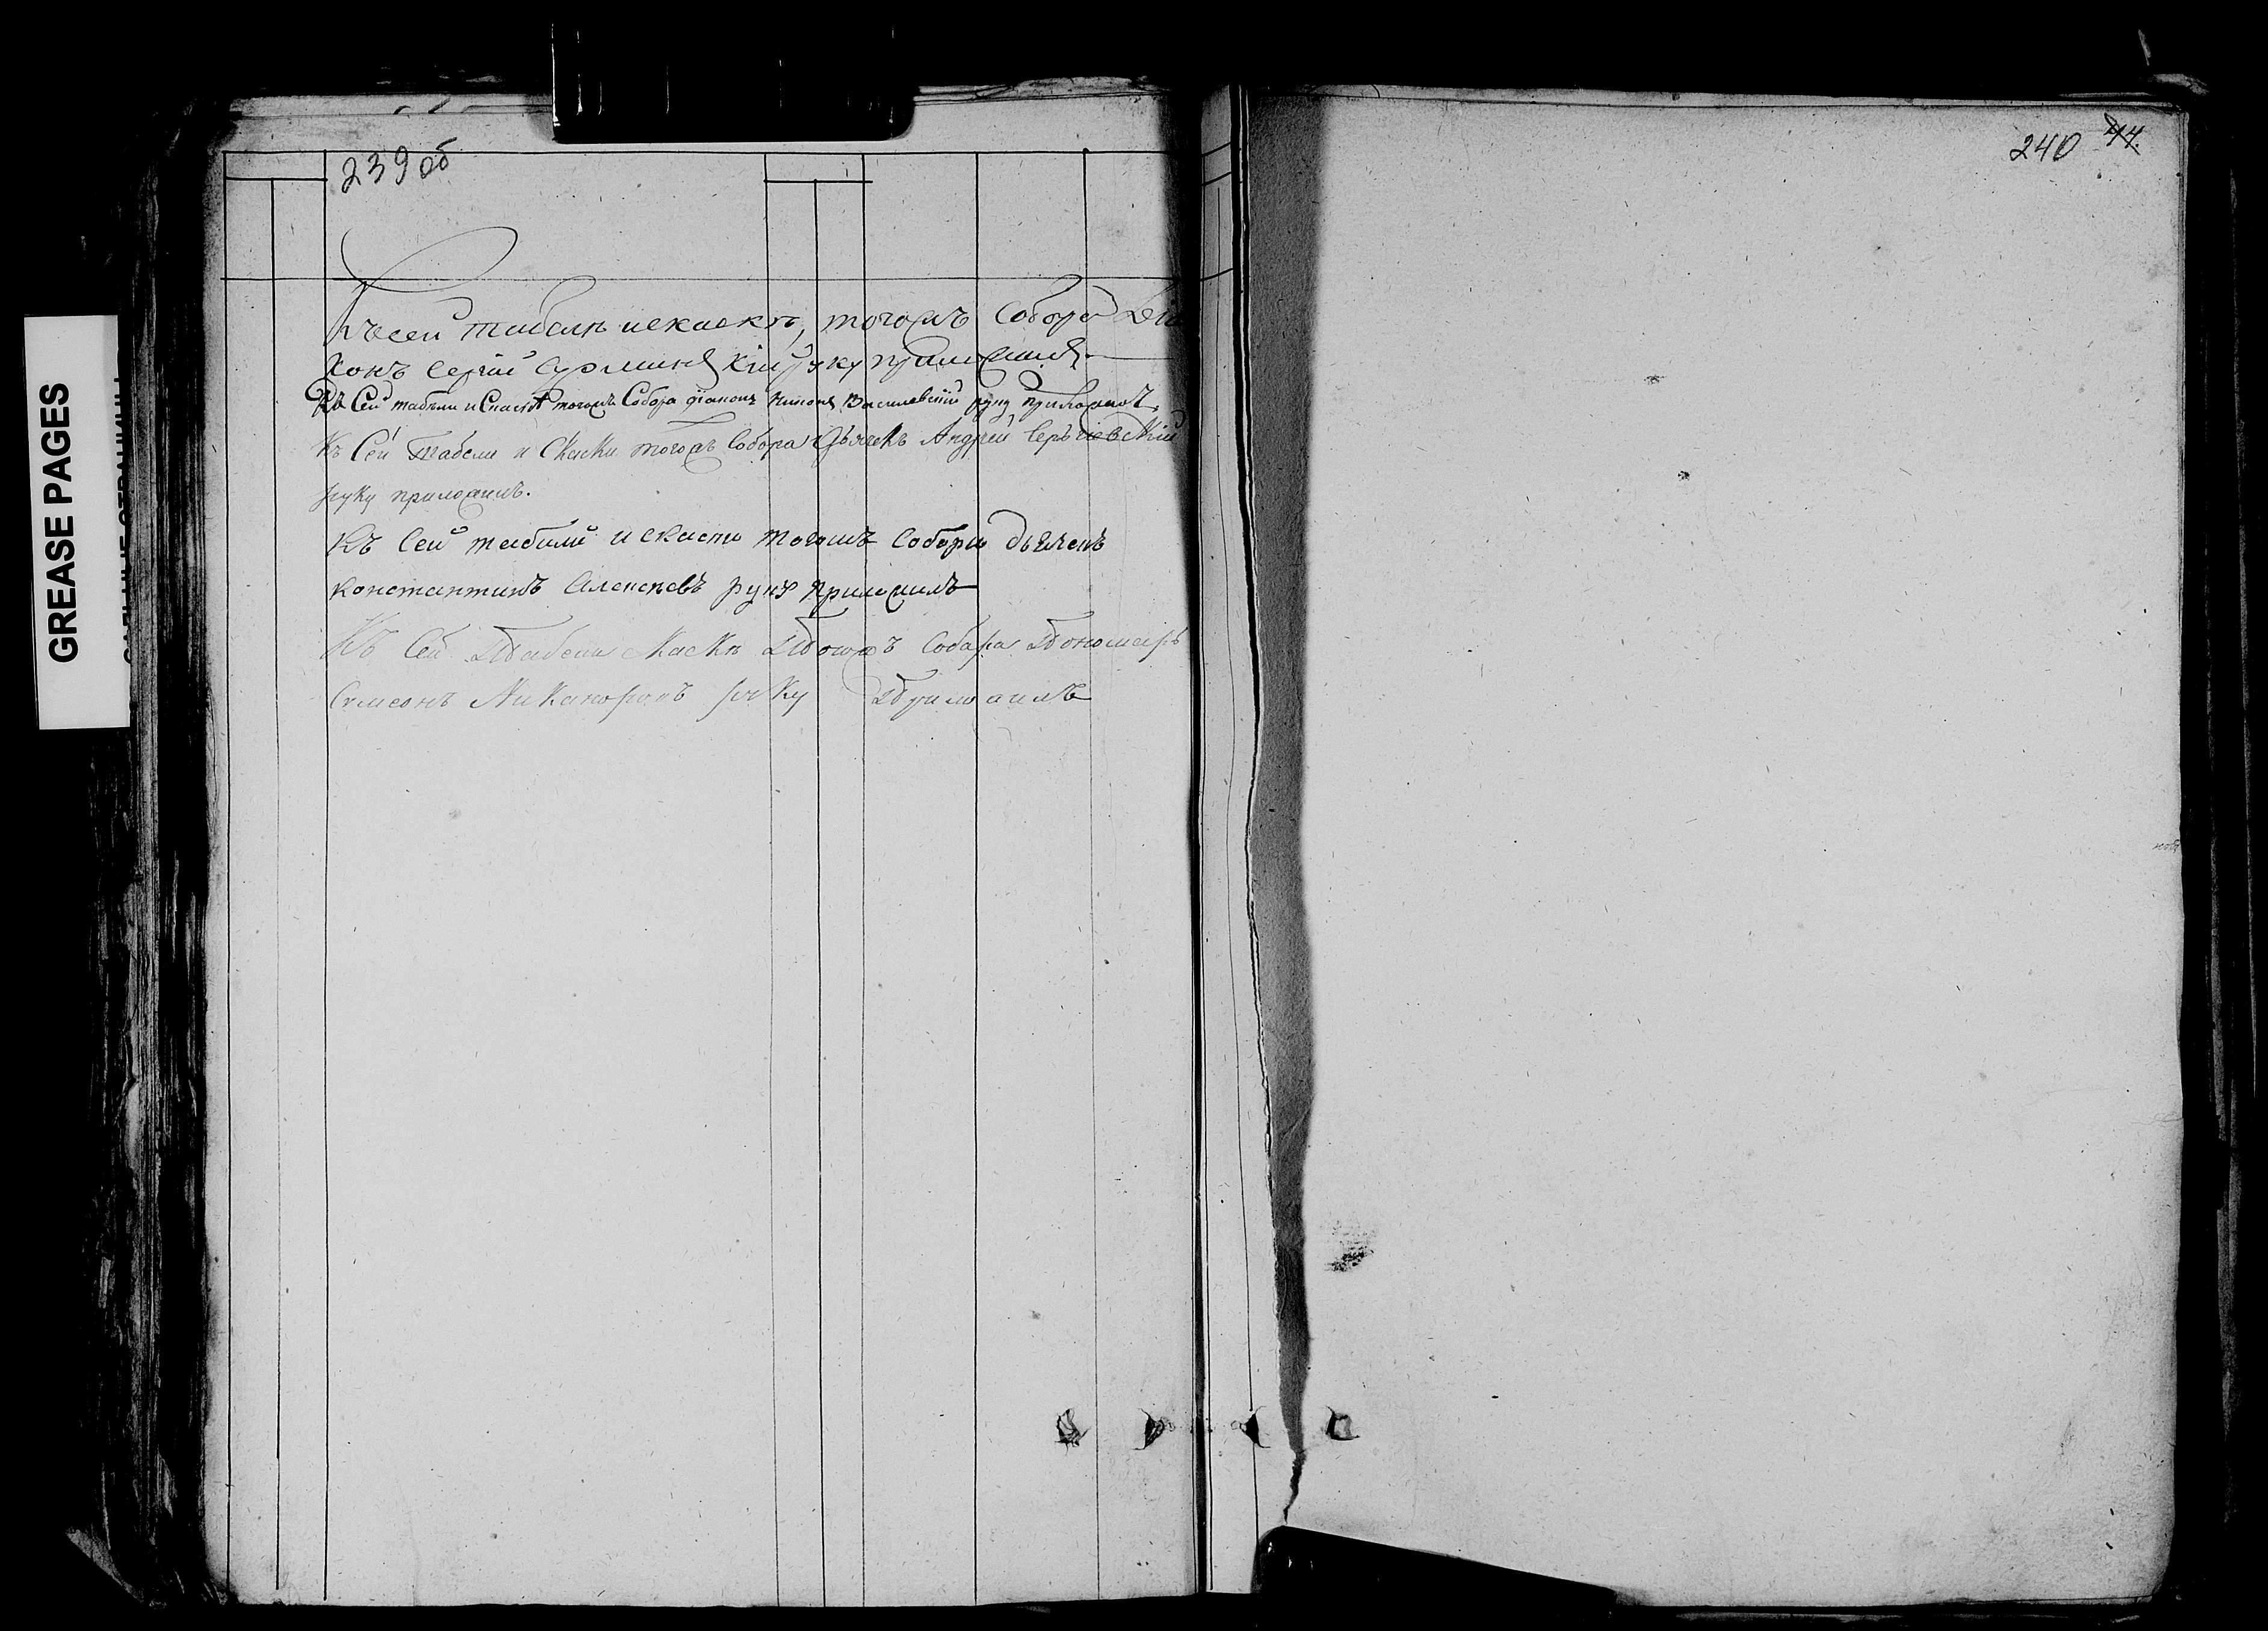 GREASE PAGES
239 об
240 44.
Къ сей табели искаскѣ, тогожъ Собора Діа
конъ Сергій руку приложилъ
Къ Сей табѣли и Скаскѣ тогожъ Собора діаконъ Василевскій руку приложилъ.
Къ Сей Табели и Скаски тогожъ Собора Дьячекъ Андрей Сергіевскій
руку приложилъ.
Къ Сей табили и скаски тогожъ Собора дьячекъ
Константинъ Алексѣевъ руку приложилъ
Къ Сей Табели скаскѣ Тогожъ Собора Пономаръ
Симеонъ Никаноровъ руку Приложилъ